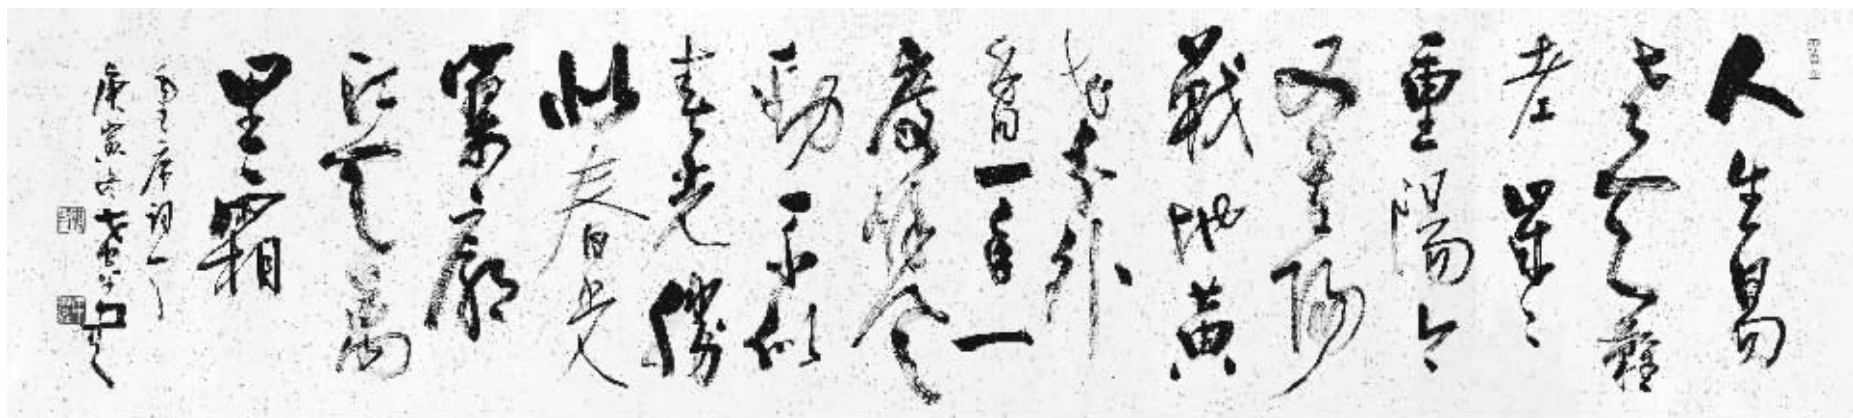 人生易
老天難
老歲歲
重陽今
又重陽
戰地黄
花分外
香一年一
度秋風
勁不似
春光勝
似春光
寥廓
江天萬
里霜
主席詞一
庚寅